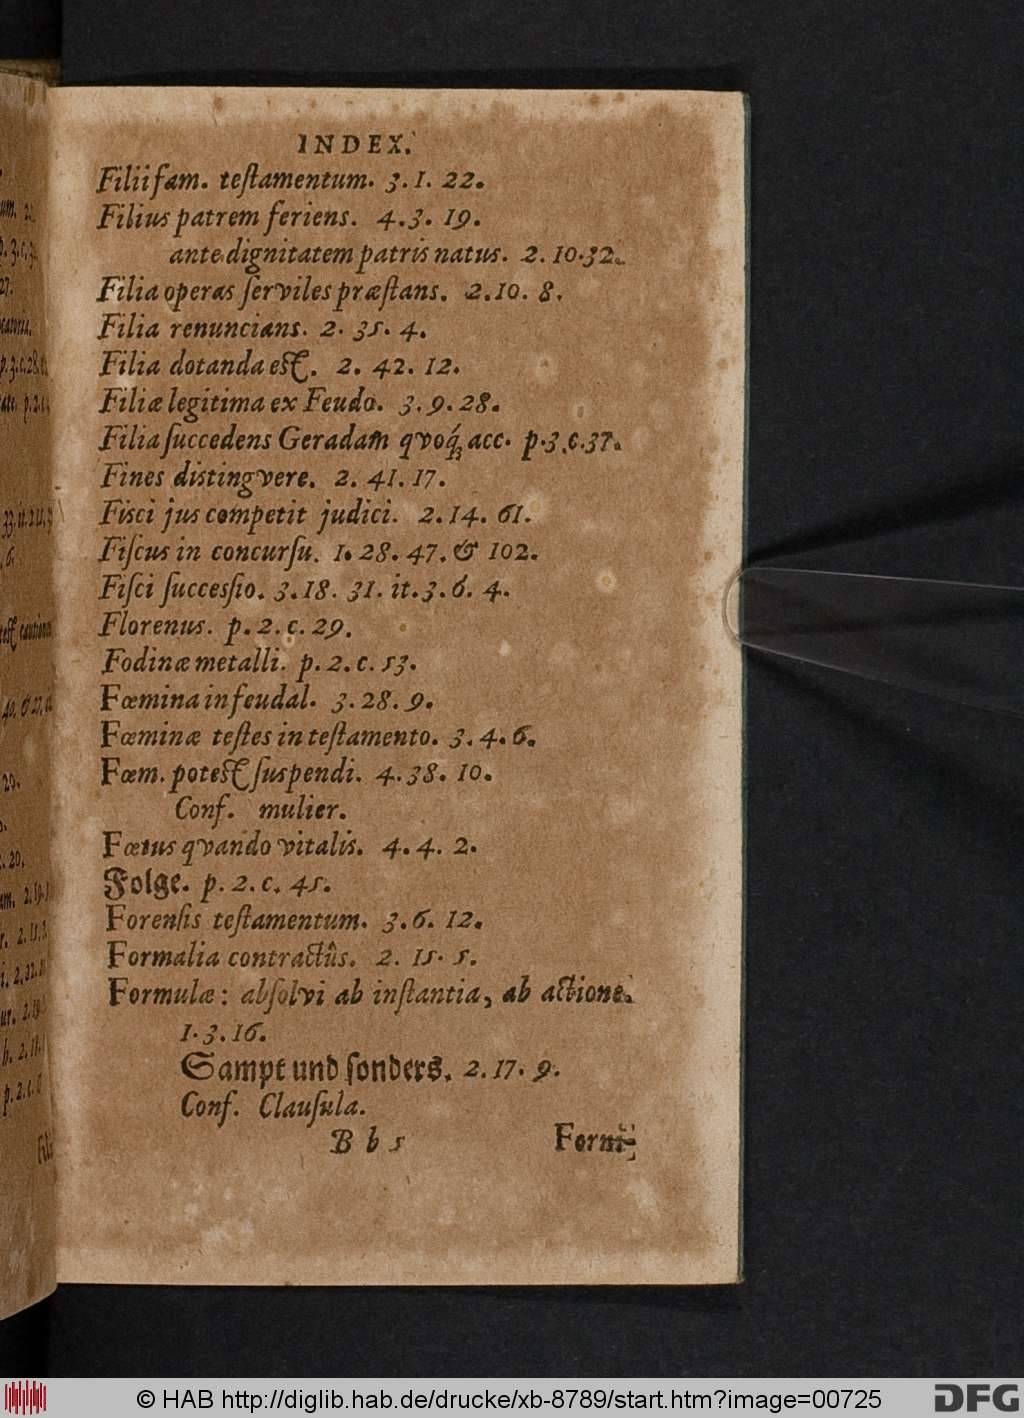 INDEX.
Filiifam. teſtamentum. 3. 1. 22.
Filius patrem feriens. 4. 3. 19.
ante dignitatem patris natus. 2. 10. 32.
Filia operas ſerviles præſtans. 2. 10. 8.
Filia renuncians. 2. 35. 4.
Filia dotanda eſt. 2. 42. 12.
Filiæ legitima ex Feudo. 3. 9. 28.
Filia ſuccedens Geradam qvoq́ꝫ acc. p. 3. c. 37.
Fines distingvere. 2. 41. 17.
Fisci jus competit judici. 2. 14. 61.
Fiſcus in concurſu. 1. 28. 47. & 102.
Fiſci ſucceſſio. 3. 18. 31. it. 3. 6. 4.
Florenus. p. 2. c. 29.
Fodinæ metalli. p. 2. c. 53.
Fœmina infeudal. 3. 28. 9.
Fœminæ teſtes in teſtamento. 3. 4. 6.
Fœm. poteſt ſuspendi. 4. 38. 10.
Conf. mulier.
Fœtus qvando vitalis. 4. 4. 2.
Folge. p. 2. c. 45.
Forenſis teſtamentum. 3. 6. 12.
Formalia contractûs. 2. 15. 5.
Formulæ: abſolvi ab inſtantia, ab actione.
1. 3. 16.
Sampt und ſonders. 2. 17. 9.
Conf. Clauſula.
B b 5 Formu-
© HAB http://diglib.hab.de/drucke/xb-8789/start.htm?image=00725
DFG